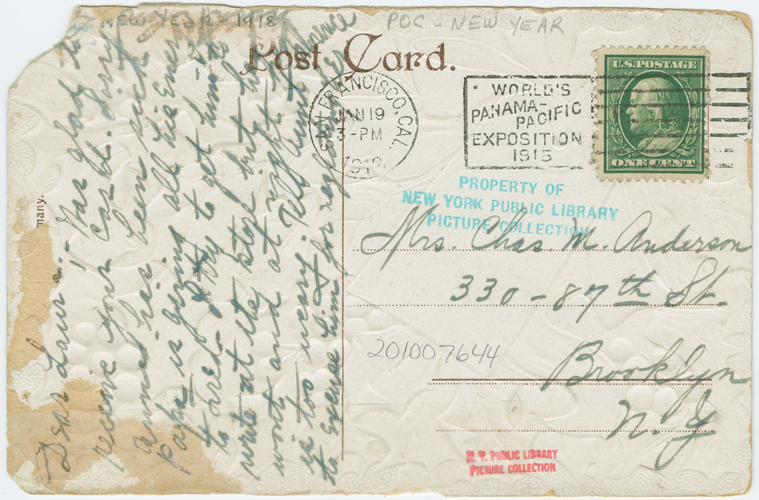 NEW YEAR - 1918
POC - NEW YEAR
Post Card.
SAN FRANCISCO, CAL.
JAN 19
3-PM
WORLD'S
PANAMA-
PACIFIC
EXPOSITION
1915
U.S. POSTAGE
ONE CENT
PROPERTY OF
NEW YORK PUBLIC LIBRARY
PICTURE COLLECTION
many.
Dear Laura:- Was glad to
receive your card. Sorry
Anna has been sick
papa is giving all his
to hard to get him to
write at the store but he
wont and at night he
is too weary.
to excuse him for
Mrs. Chas. M. Anderson
330-87th St.
Brooklyn
N.Y
201007644
N.Y. PUBLIC LIBRARY
PICTURE COLLECTION